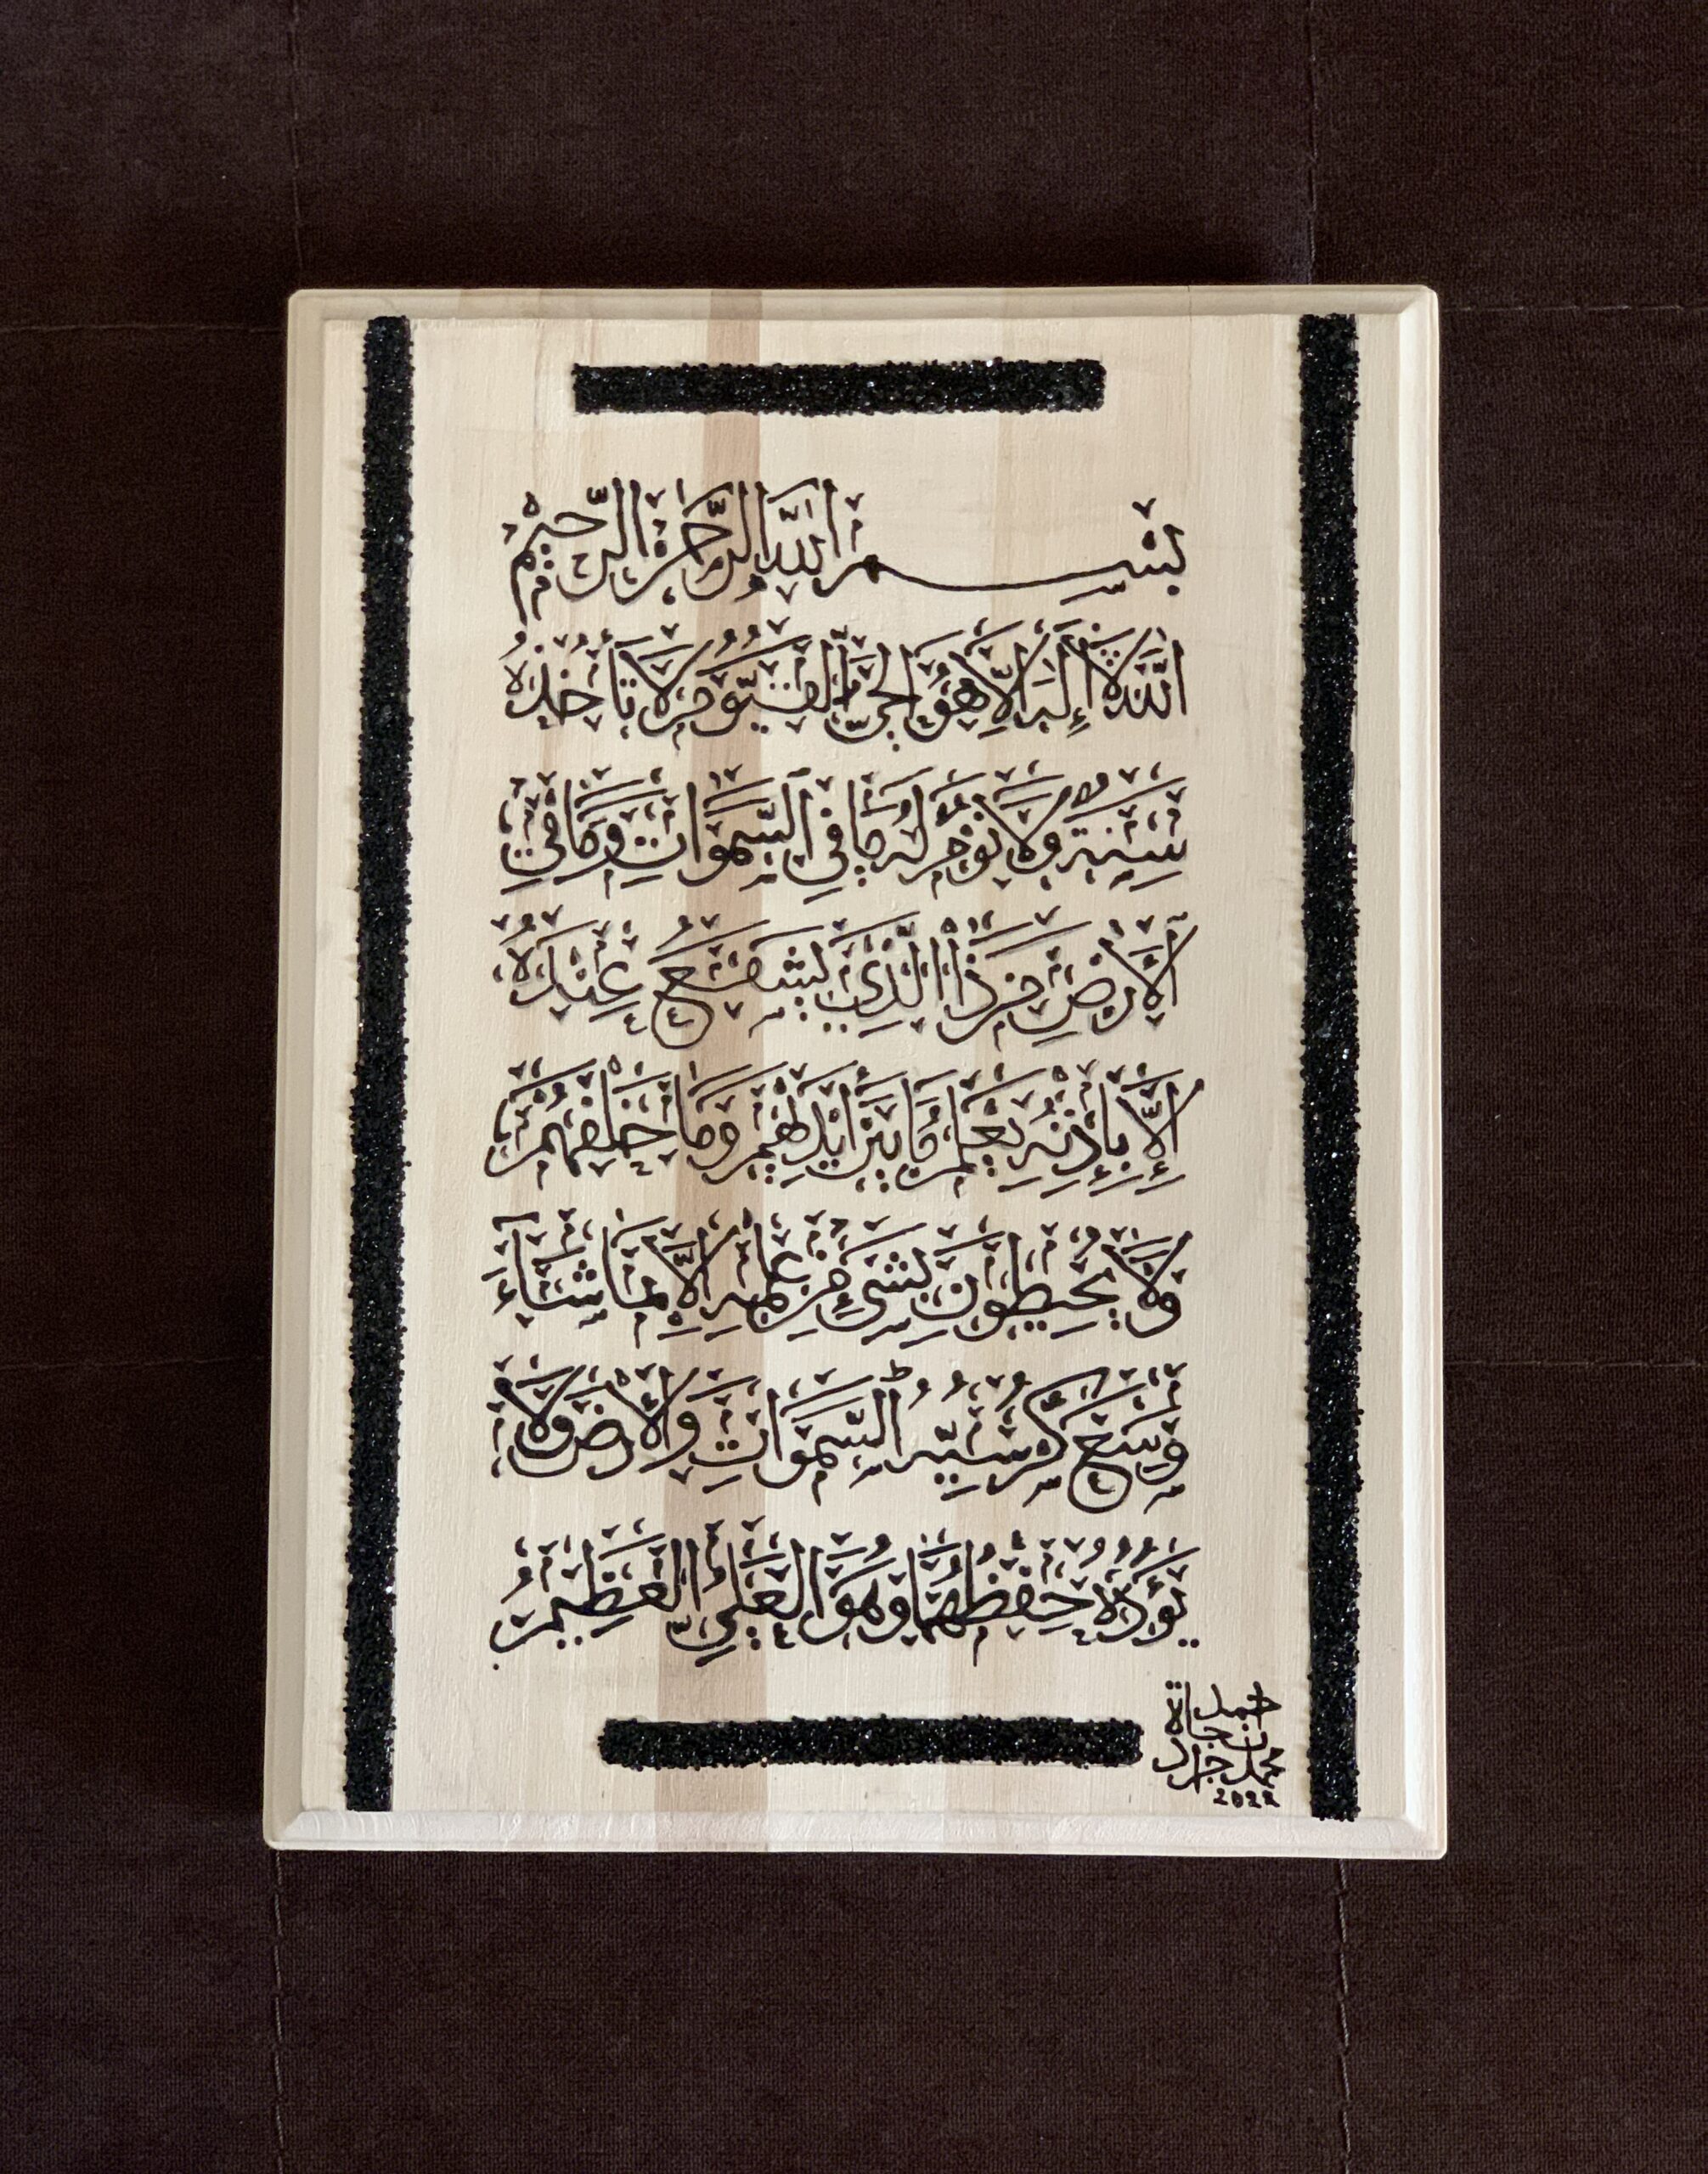 بسم الله الرحمن الرحيم
الله لا إله إلا هو الحي القيوم لا تأخذه
سنة ولا نوم له ما في السموات وما في
الأرض من ذا الذي يشفع عنده
إلا بإذنه يعلم ما بين أيديهم وما خلفهم
ولا يحيطون بشيء من علمه إلا بما شاء
وسع كرسيه السموات والأرض ولا
يؤده حفظهما وهو العلي العظيم
محمد جراد
2022